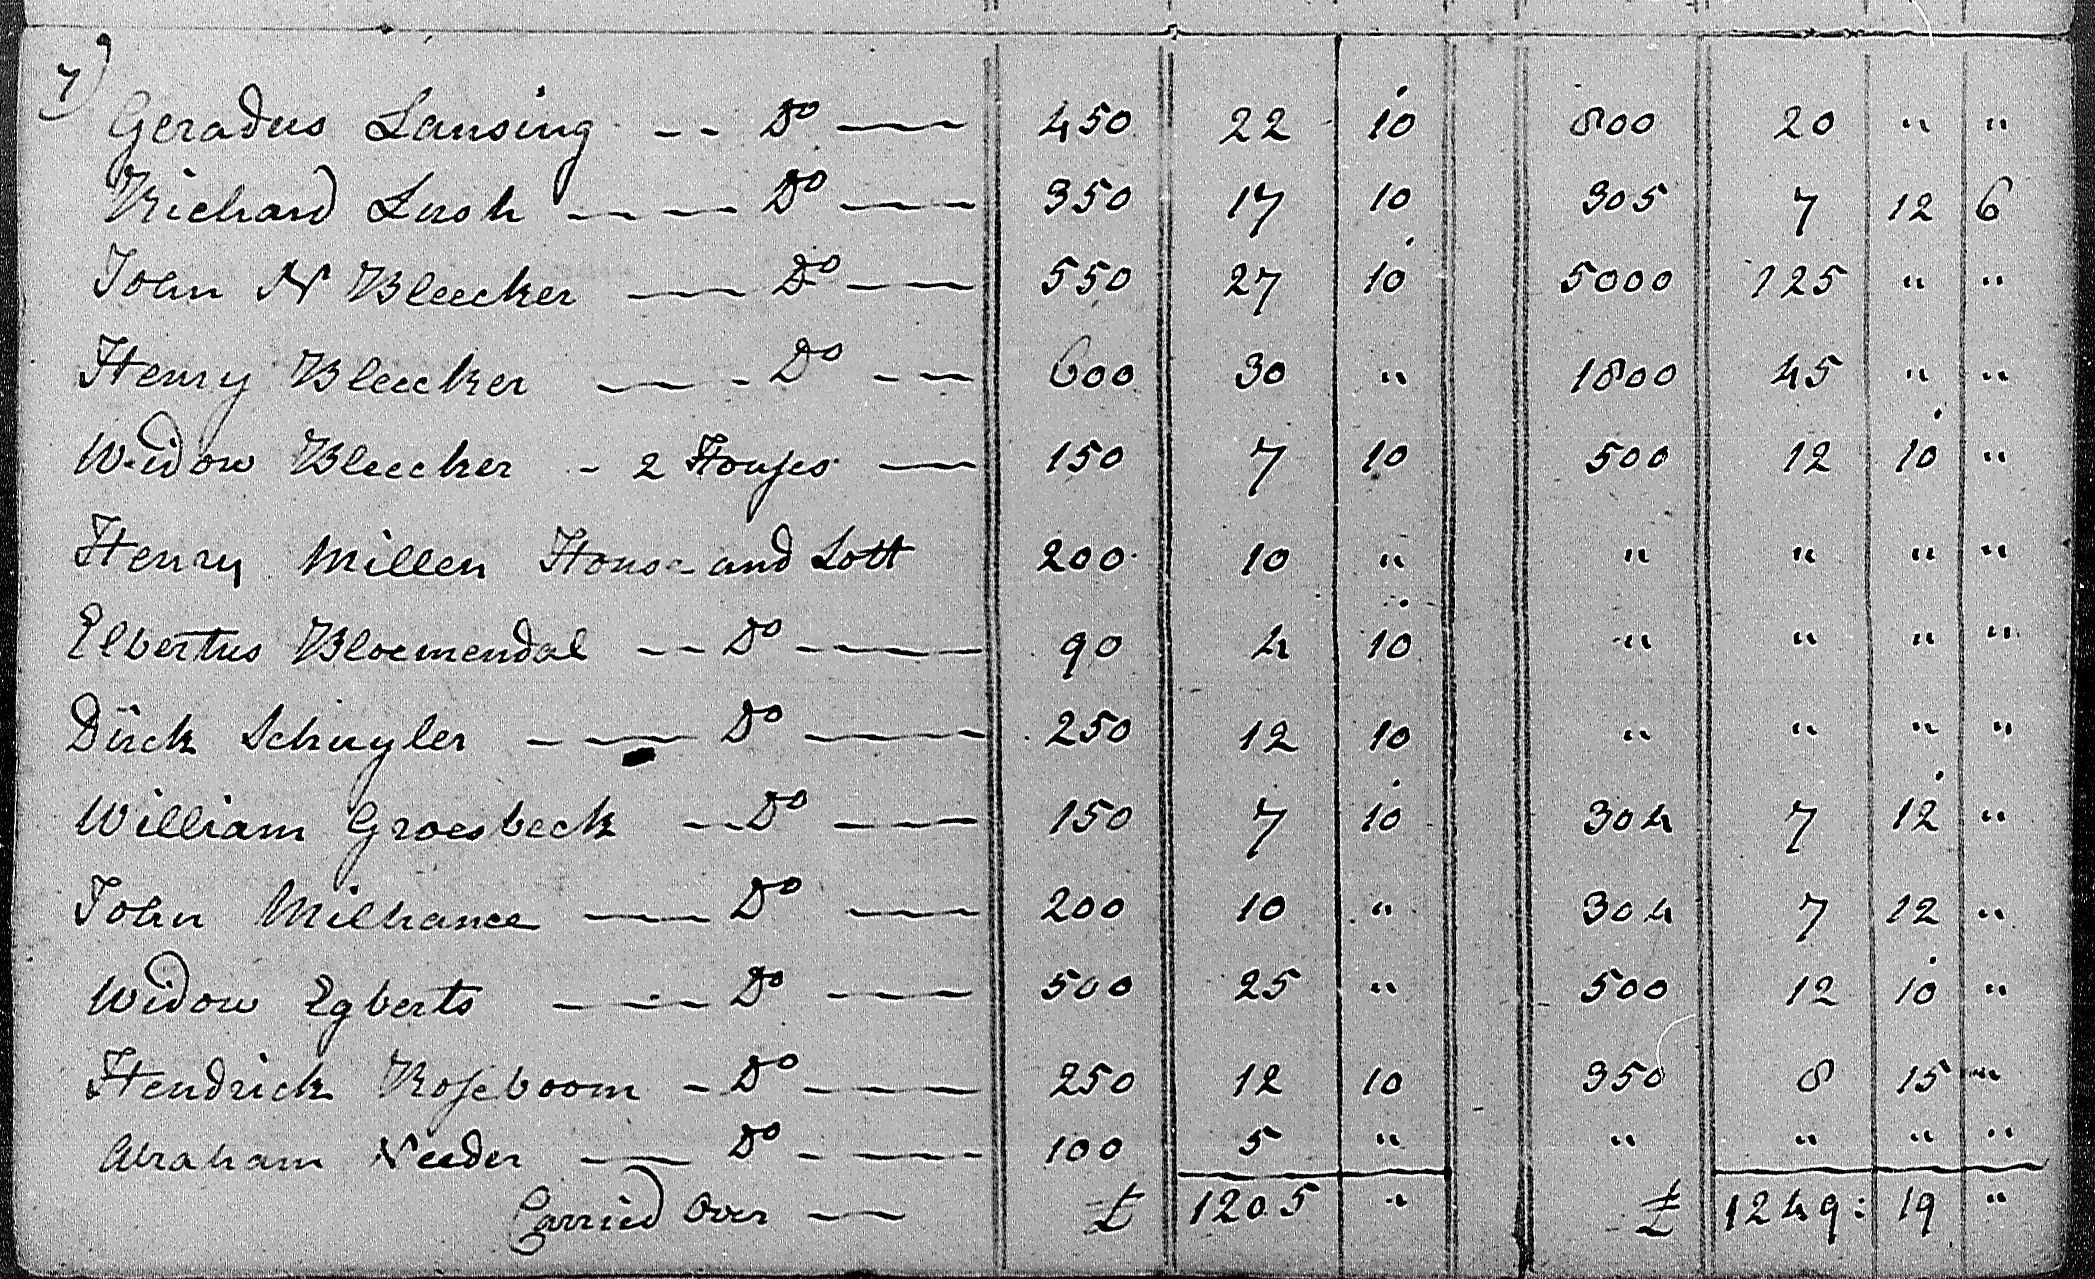 7)
Geradus Lansing -- Do — 450 22 10 800 20 " "
Richard Lush — — Do — 350 17 10 305 7 12 6
John N Bleecker — Do — 550 27 10 5000 125 " "
Henry Bleecker — - Do - — 600 30 " 1800 45 " "
Widow Bleecker - 2 Houses — 150 7 10 500 12 10 "
Henry Millen House and Lott 200 10 " " " " "
Elbertus Bloemendal -- Do - — 90 4 10 " " " "
Dirck Schuyler - — Do — 250 12 10 " " " "
William Groesbeck -- Do — 150 7 10 304 7 12 "
John Milhance — Do — 200 10 " 304 7 12 "
Widow Egberts — - — Do - — 500 25 " 500 12 10 "
Hendrick Roseboom - Do — 250 12 10 350 8 15 "
Abraham Needer — Do - - — 100 5 " " " " "
Carried Over - — £ 1205 " £ 1249: 19 "